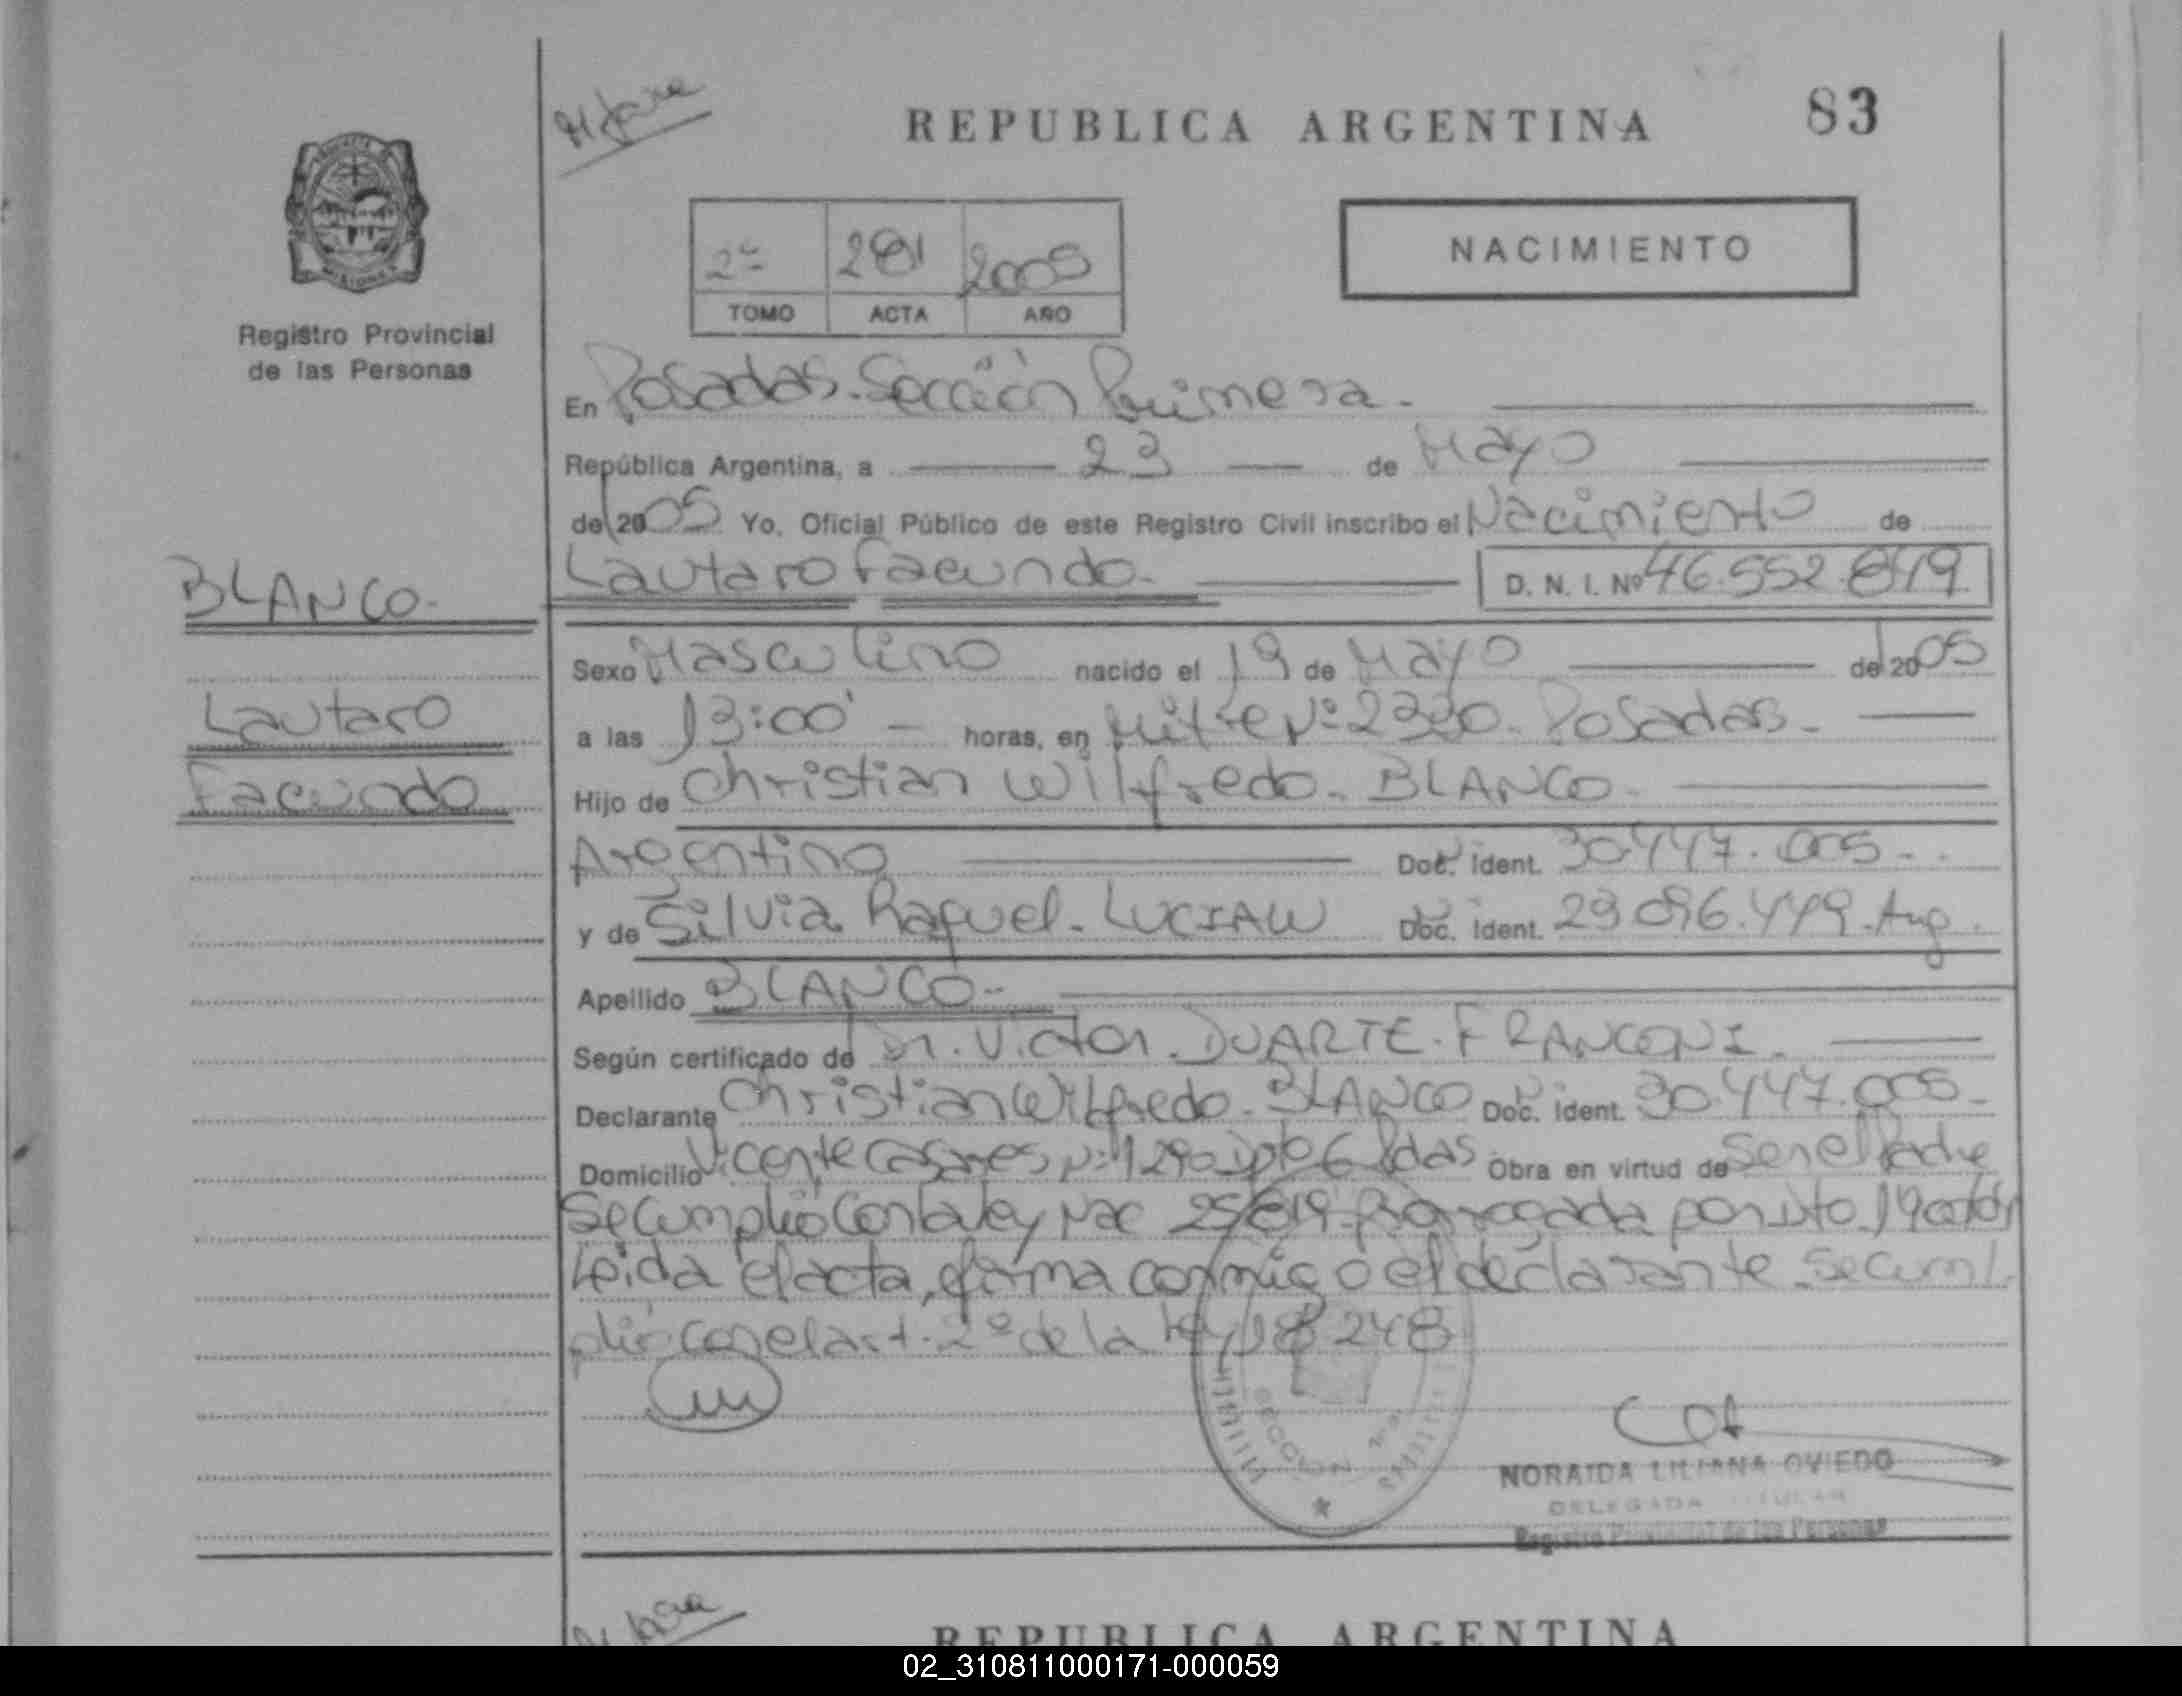 REPUBLICA ARGENTINA
83
NACIMIENTO
2º 281 2005
TOMO ACTA AÑO
Registro Provincial
de las Personas
En Posadas. Sección Primera.
República Argentina, a 23 de Mayo
del 2005 Yo, Oficial Público de este Registro Civil inscribo el Nacimiento de
BLANCO.
Lautaro Facundo. D. N. I. Nº 46.552.849
Sexo Masculino nacido el 19 de Mayo del 2005
Lautaro
a las 13:00 horas, en Mitre Nº 2330. Posadas.
Facundo
Hijo de Christian Wilfredo. BLANCO.
Argentino Doc. Ident. 30.447.005.
y de Silvia Raquel. Doc. Ident. 29.096.449. Arg.
Apellido BLANCO.
Según certificado de Dr. Victor. DUARTE. FRANCONI.
Declarante Christian Wilfredo. BLANCO Doc. Ident. 30.447.005.
Domicilio Vicente Casares Nº 1290 Dpto 6 Pdas Obra en virtud de Ser el Padre
Se cumplió con la Ley Nac 25819. Prorrogada por Dto.
Leida el acta, firma conmigo el declarante. Se cum
plió con el art. 2º de la Ley 18248
SECCION
NORAIDA LILIANA OVIEDO
DELEGADA TITULAR
Registro Provincial de las Personas
REPUBLICA ARGENTINA
02_310811000171-000059